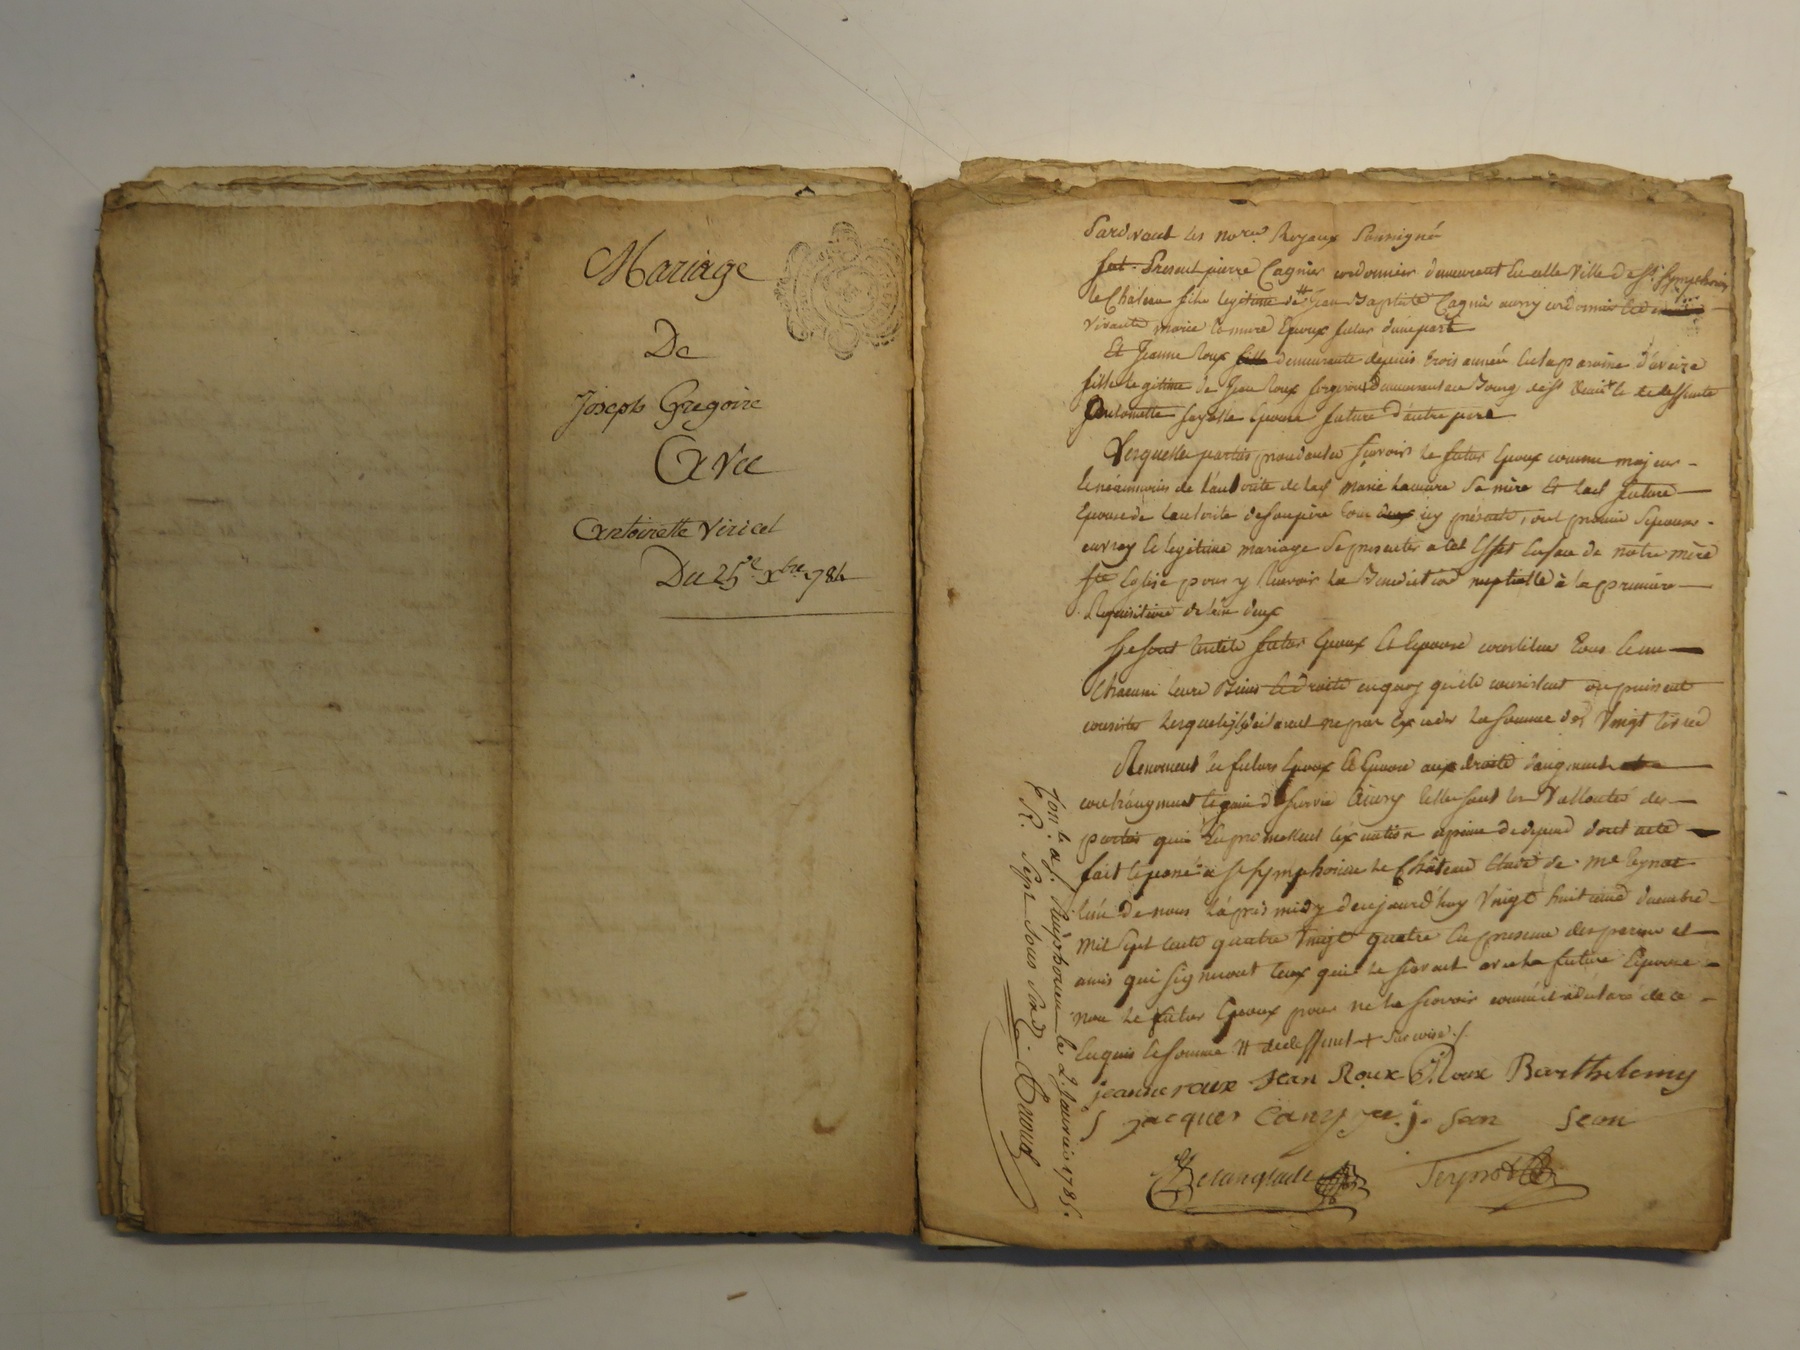 Mariage
De
Joseph Gregoire
Avec
Antoinette Viricel
Du 25e Xbre 1784
Pardevant les nores Royaux Soussigné
fut Present pierre Cagnier cordonnier demeurant en cette Ville de St Symphorien
le Château fils legitime de # Jean Baptiste Cagnier aussy cordonnier et de
vivante marie Lamure Epoux futur d'une part
Et Jeanne Roux fille demeurante depuis trois année en la paroisse d'aveize
fille legitime de Jean Roux demeurant au Bourg de et de deffunte
Antoinette fayolle Epouse future d'autre part
Lesquelle parties procedantes scavoir le futur Epoux comme majeur
et néanmoins de l'autorité de lad marie Lamure Sa mère Et lad future
Epouse de lautorité de son père tous deux icy présents, ont promis Sepouser
en vray et legitime mariage Se presenter a cet Effet en face de notre mère
Ste Eglise pour y Recevoir la Benediction nuptialle à la première
Requisition de l'un deux
Se sont lesdits futur Epoux Et Epouse constitué tous et un
Chacuns leurs Biens et droits en quoy qu'ils consistent ou puissent
consister Lesquels n'exceder La Somme de Vingt livres
Renoncent les futurs Epoux et Epouse aux droits d'augment
contr'augment et gain de Survie Ainsy telle sont les Vollontés des
parties qui En promettent l'éxécution a peine de depend dont acte
fait et passé a St Symphorien le Château Etude de me Eynot
l'un de nous L'après midy de cejourd'huy Vingt huit decembre
mil Sept cents quatre Vingt quatre En presence des parens et
amis qui Signeront Ceux qui le scavent avec La future Epouse
non le futur Epoux pour ne le scavoir comme il a declaré de ce
Enquis et Sommé # de deffunt +
jeanne roux Jean Roux Roux Barthelemy
Jacques Cany Jean Jean
Delanglade Eynot
Conlé a St Simphorien le 2 Janvier 1785.
R. Sept Sous Six d.